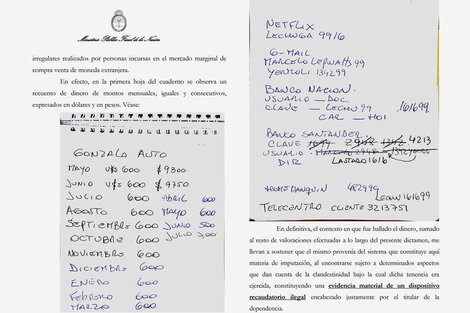 Ministerio Público Fiscal de la Nación
irregulares realizados por personas incursas en el mercado marginal de
compra venta de moneda extranjera.
En efecto, en la primera hoja del cuaderno se observa un
recuento de dinero de montos mensuales, iguales y consecutivos,
expresados en dólares y en pesos. Véase:
GONZALO AUTO
MAYO U$S 600 $9300
JUNIO U$S 600 $9750
JULIO 600 ABRIL 600
AGOSTO 600 MAYO 600
SEPTIEMBRE 600 JUNIO 500
OCTUBRE 600 JULIO 500
NOVIEMBRE 600
DICIEMBRE 600
ENERO 600
FEBRERO 600
MARZO 600
NETFLIX
LECHUGA 9916
G-MAIL
MARCELO
YERMOLI 134299
BANCO NACION.
USUARIO — DOC.
CLAVE — LECHUN 99 .161699.
CAR — HOI
BANCO SANTANDER:
CLAVE 4213
USUARIO
DIR LASTARO 1616
HOMEBANQUIN 482999
LECHU 161699
TELECENTRO CLIENTE 3213751
En definitiva, el contexto en que fue hallado el dinero, sumado
al resto de valoraciones efectuadas a lo largo del presente dictamen, me
llevan a sostener que el mismo provenía del sistema que constituye aquí
materia de imputación, al encontrarse sujeto a determinados aspectos
que dan cuenta de la clandestinidad bajo la cual dicha tenencia era
ejercida, constituyendo una evidencia material de un dispositivo
recaudatorio ilegal encabezado justamente por el titular de la
dependencia.